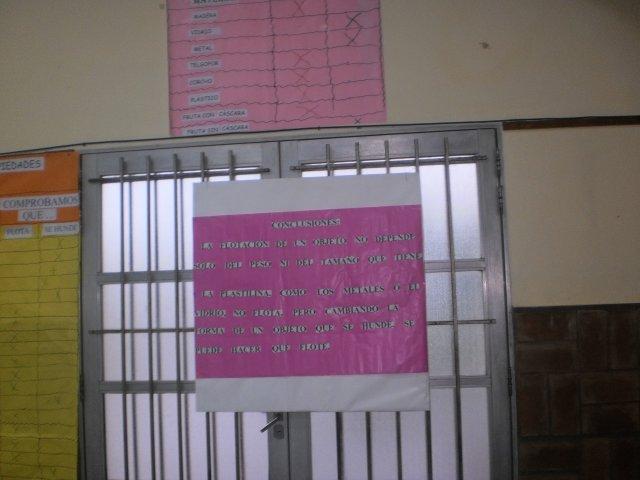 MADERA
VIDRIO
METAL
TELGOPOR
CORCHO
PLÁSTICO
FRUTA CON CÁSCARA
FRUTA SIN CÁSCARA
IEDADES
COMPROBAMOS
QUE...
FLOTA SE HUNDE
CONCLUSIONES:
LA FLOTACIÓN DE UN OBJETO NO DEPENDE
SOLO DEL PESO NI DEL TAMAÑO QUE TIENE.
LA PLASTILINA, COMO LOS METALES O EL
VIDRIO NO FLOTA, PERO CAMBIANDO LA
FORMA DE UN OBJETO QUE SE HUNDE, SE
PUEDE HACER QUE FLOTE.